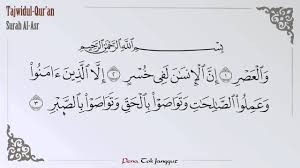 Tajwidul-Qur'an
Surah Al-Asr
بِسْمِ ٱللَّهِ ٱلرَّحْمَٰنِ ٱلرَّحِيمِ
وَٱلْعَصْرِ ١ إِنَّ ٱلْإِنسَٰنَ لَفِى خُسْرٍ ٢ إِلَّا ٱلَّذِينَ ءَامَنُوا۟
وَعَمِلُوا۟ ٱلصَّٰلِحَٰتِ وَتَوَاصَوْا۟ بِٱلْحَقِّ وَتَوَاصَوْا۟ بِٱلصَّبْرِ ٣
Pena Tok Janggut